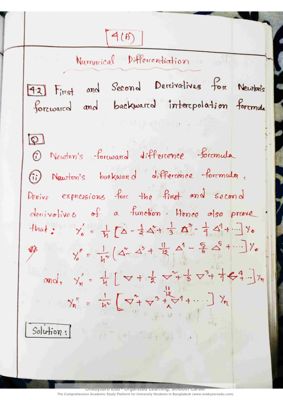 4(B)
Numerical Differentiation
4.2 First and Second Derivatives for Newton's
forward and backward interpolation formula
Q
(i) Newton's forward difference formula
(ii) Newton's backward difference formula.
Derive expressions for the first and second
derivatives of a function. Hence also prove
that: y₀' = 1/h [Δ - 1/2 Δ² + 1/3 Δ³ - 1/4 Δ⁴ + ...] y₀
y₀'' = 1/h² [Δ² - Δ³ + 11/12 Δ⁴ - 5/6 Δ⁵ + ...] y₀
and, yₙ' = 1/h [∇ + 1/2 ∇² + 1/3 ∇³ + 1/4 ∇⁴ ...] yₙ
yₙ'' = 1/h² [∇² + ∇³ + 11/12 ∇⁴ + ...] yₙ
Solution:
The Comprehensive Academic Study Platform for University Students in Bangladesh